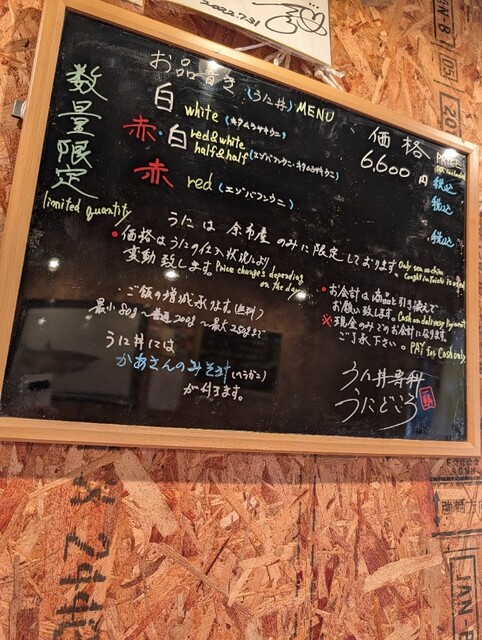 2022.7.31
お品書き (うに丼) MENU
数量限定
limited quantity
価格
白 white (キタムラサキウニ)
6,600円 税込
赤・白 red&white half&half (エゾバフンウニ・キタムラサキウニ)
税込
赤 red (エゾバフンウニ)
税込
うには余市産のみに限定しております Only sea urchin
• 価格はうにの仕入状況により
変動致します。 Price changes depending
on the day
・ご飯の増減承ります。(無料)
最小80g〜普通200g〜最大250gまで
うに丼には
かあさんのみそ汁
が付きます。
• お会計は商品と引き換えで
お願い致します。 Cash on delivery payment
※ 現金のみでのお会計になります。
ご了承下さい。 PAY for Cash only
うに丼専科
うにどころ
JAN-B
20
2440
JAN-B